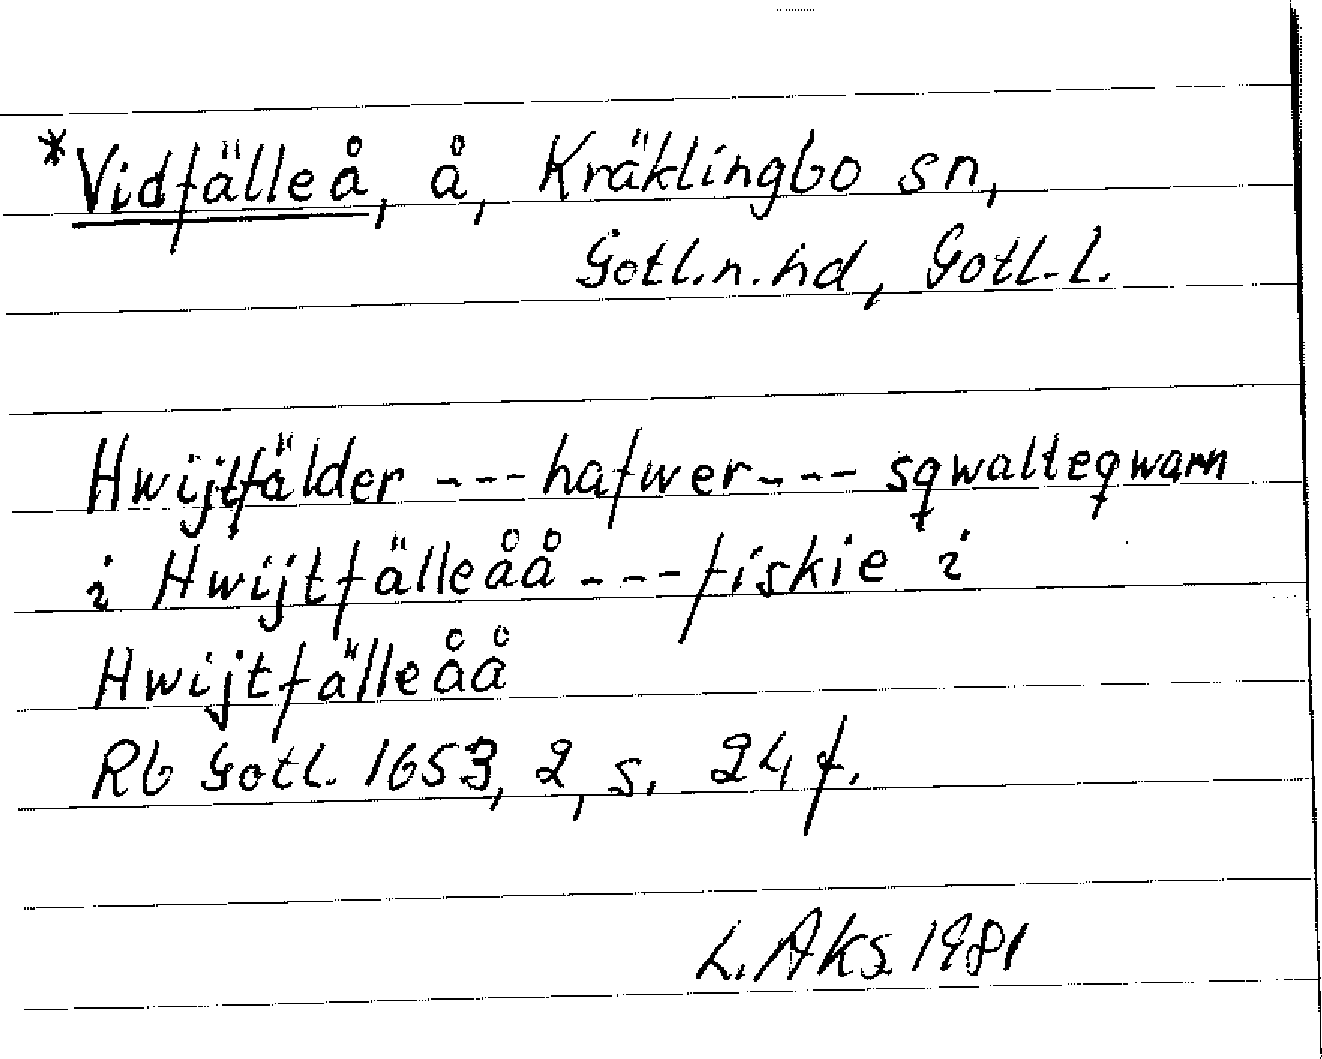 *Vidfälleå, å, Kräklingbo sn,
Gotl.n.hd, Gotl.l.
Hwijtfälder --- hafwer --- sqwalteqwarn
i Hwijtfälleåå --- fiskie i
Hwijtfälleåå
Rb Gotl. 1653, 2, s. 24 f.
L. Aks. 1981